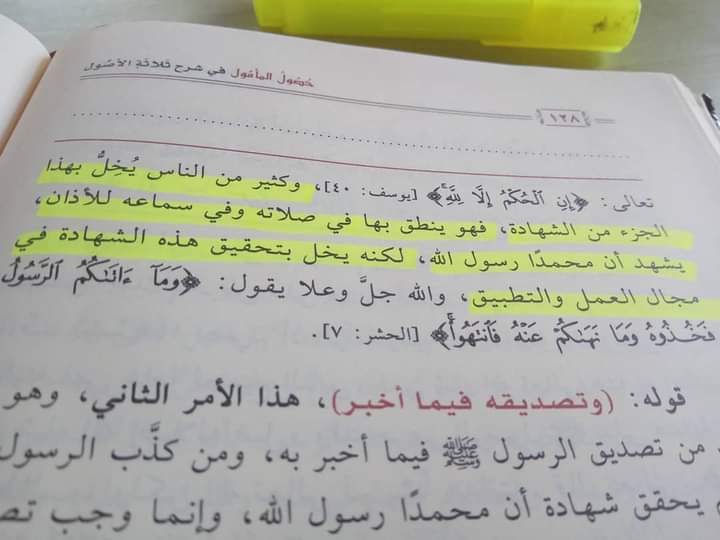 حُصُولُ المَأمُول في شرح ثلاثة الأصُول
١٢٨
تعالى: ﴿إِنِ ٱلْحُكْمُ إِلَّا لِلَّهِ﴾ [يوسف: ٤٠]، وكثير من الناس يُخِلُّ بهذا
الجزء من الشهادة، فهو ينطق بها في صلاته وفي سماعه للأذان،
يشهد أن محمدًا رسول الله، لكنه يخل بتحقيق هذه الشهادة في
مجال العمل والتطبيق، والله جلَّ وعلا يقول: ﴿وَمَآ ءَاتَىٰكُمُ ٱلرَّسُولُ
فَخُذُوهُ وَمَا نَهَىٰكُمْ عَنْهُ فَٱنتَهُوا۟﴾ [الحشر: ٧].
قوله: (وتصديقه فيما أخبر)، هذا الأمر الثاني، وهو
من تصديق الرسول ﷺ فيما أخبر به، ومن كذَّب الرسول
يحقق شهادة أن محمدًا رسول الله، وإنما وجب